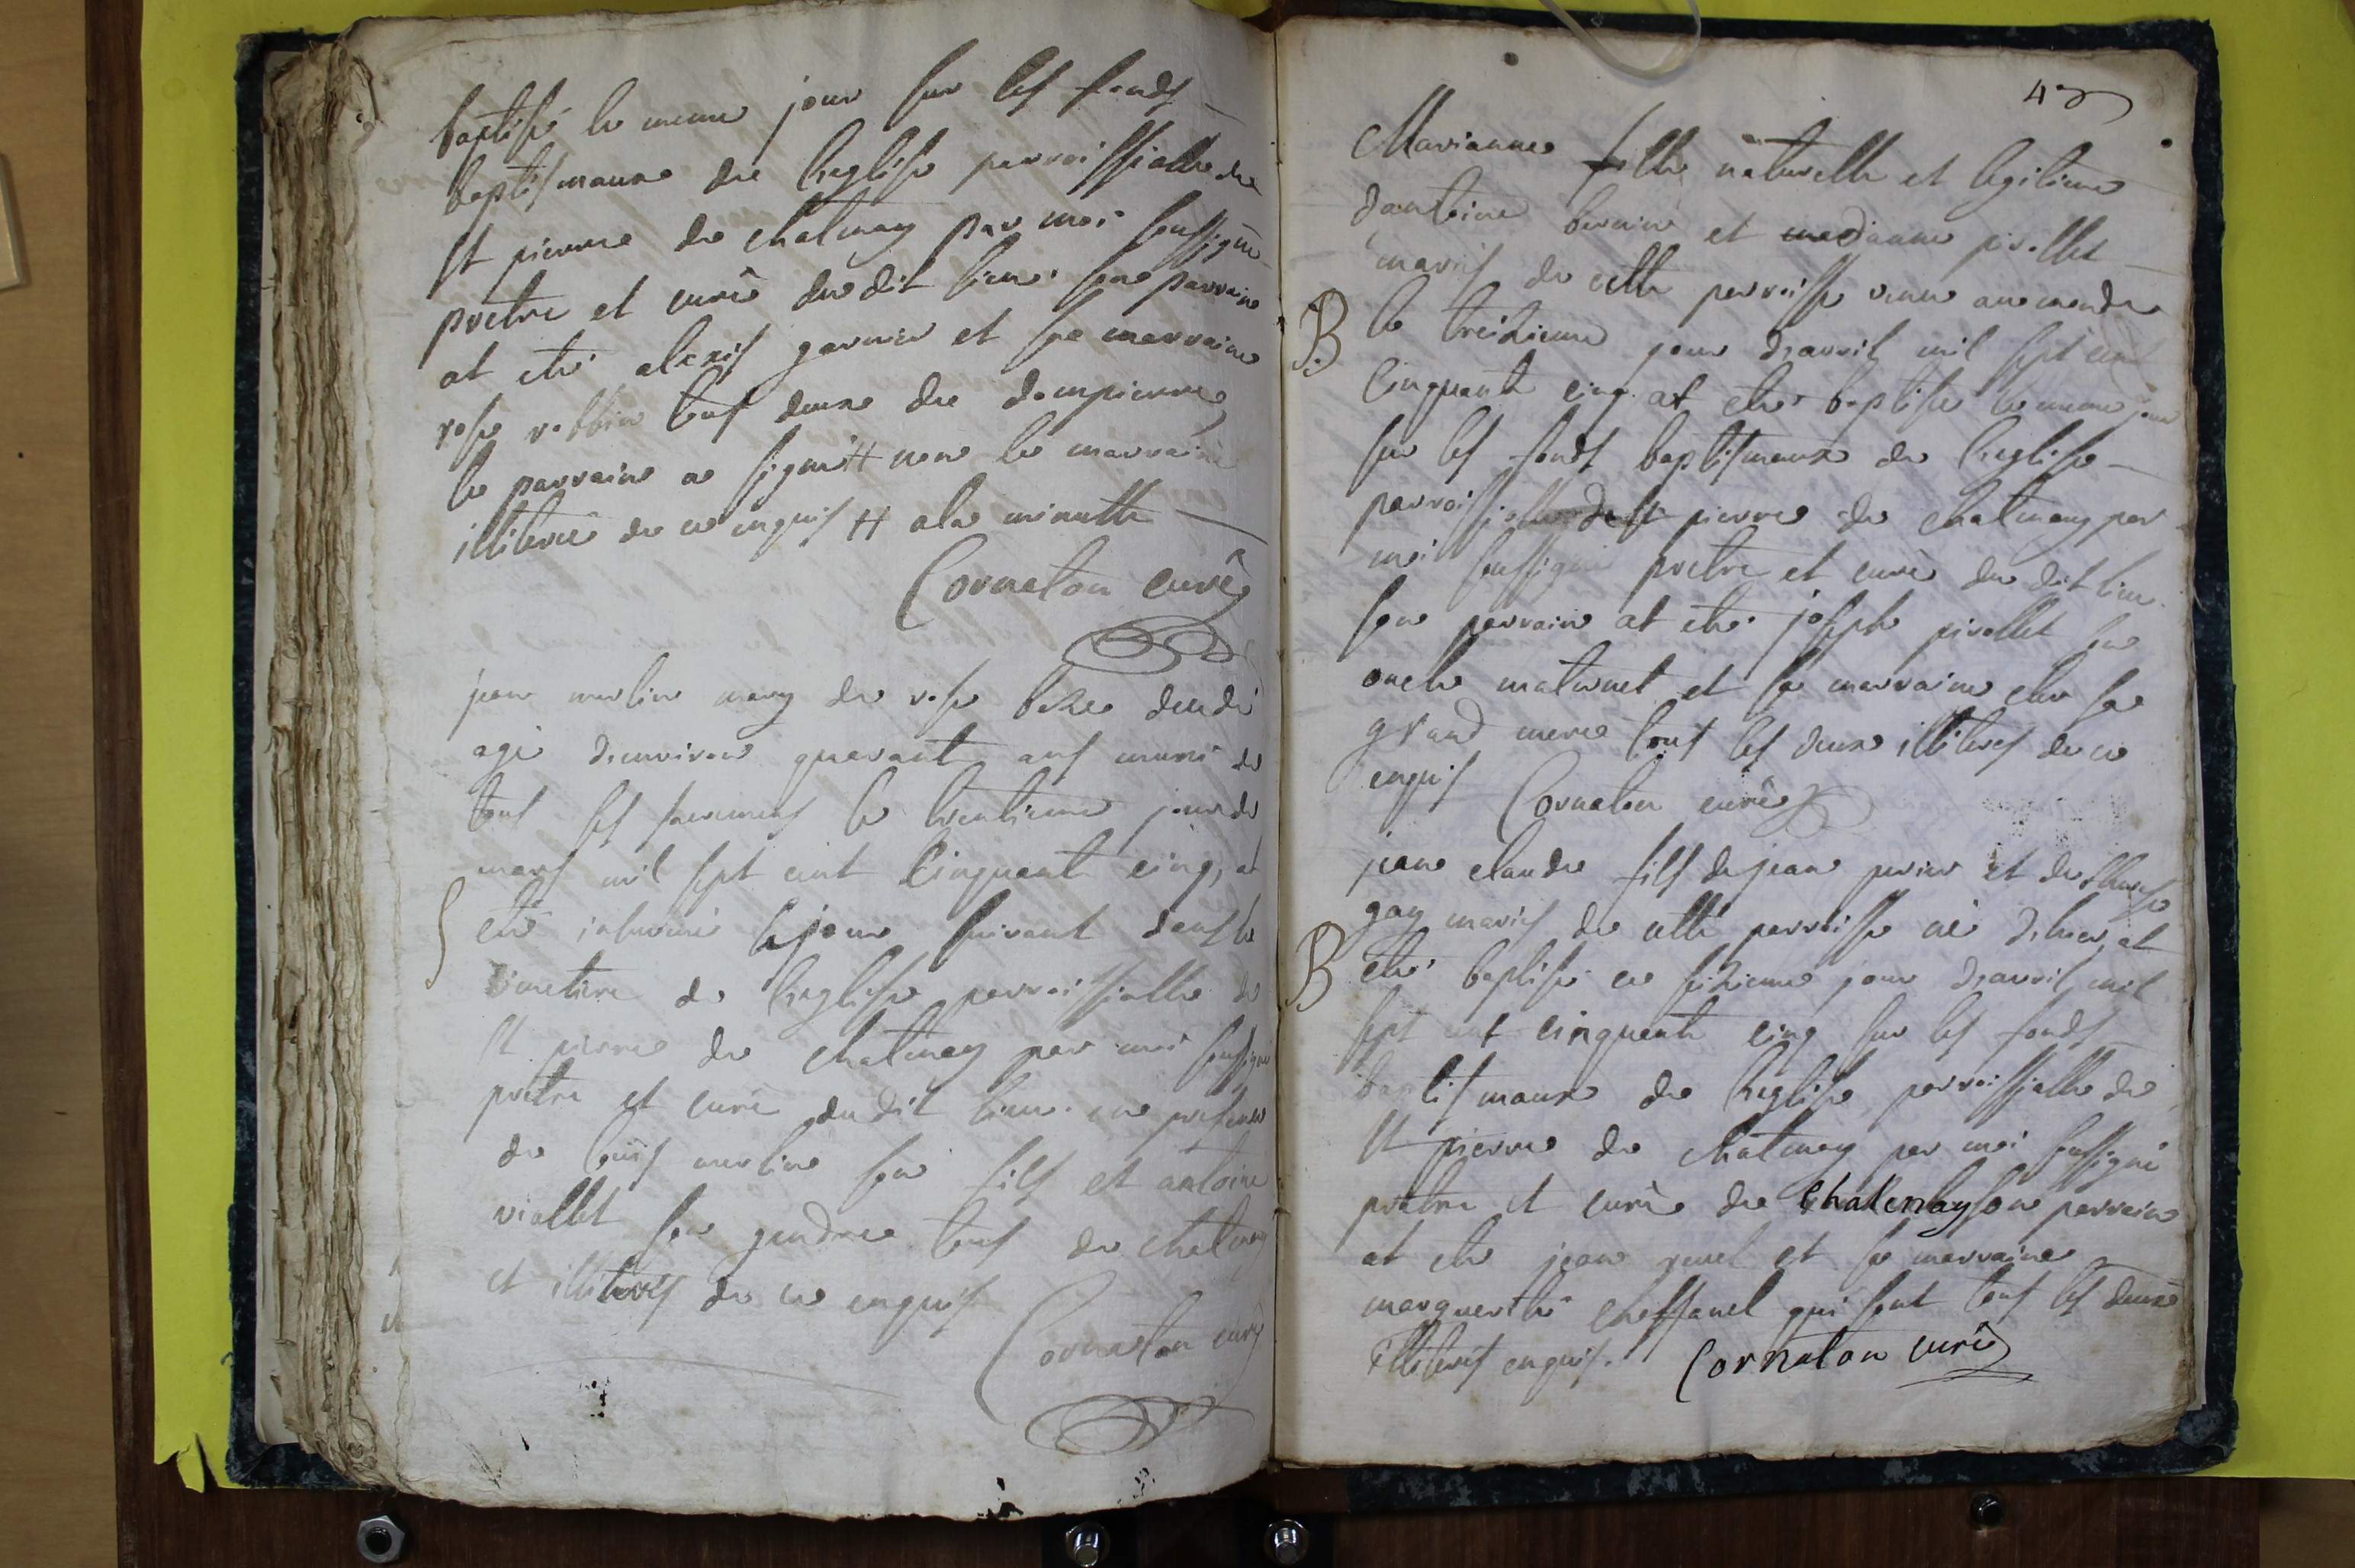 baptisé le meme jour sur les fonds
baptismaux de l'eglise parroissialle de
St pierre de chatenay par moi soussigné
pretre et curé du dit lieu. son parrain
at eté alexis garnier et sa marraine
rose robbin tous deux de dompierre,
le parrain a signé # non la marraine
illiteré de ce enquis # a la minutte
Cornaton curé
jean merlin mary de rose
agé d'environ quarante ans muni de
tous les sacremens le trentieme jour de
mars mil sept cent cinquante cinq, at
eté inhumé le jour suivant dans le
S
cimetiere de l'eglise parroissialle de
St pierre de chatenay par moi soussigné
pretre et curé du dit lieu. en presence
de louis merlin son fils et antoine
viollet son gendre tous de chatenay
et illiterés de ce enquis
Cornaton curé
42
Marianne fille naturelle et legitime
d'antoine bernin et anne pirollet
mariés de cette parroisse venue au monde
B
le treizieme jour d'avril mil sept cent
cinquante cinq at eté baptisée le meme jour
sur les fonds baptismaux de l'eglise
parroissialle de St pierre de chatenay par
moi soussigné pretre et curé du dit lieu.
son parrain at eté joseph pirollet son
oncle maternel et sa marraine sa
grand mere tous les deux illiterés de ce
enquis Cornaton curé
jean claude fils de jean perier et de therese
gay mariés de cette parroisse né d'hier, at
B
eté baptisé ce seizieme jour d'avril mil
sept cent cinquante cinq sur les fonds
baptismaux de l'eglise parroissialle de
St pierre de chatenay par moi soussigné
pretre et curé de Chatenay son parrain
at eté jean et sa marraine
marguerithe chossanel qui sont tous les deux
illiterés enquis. Cornaton curé